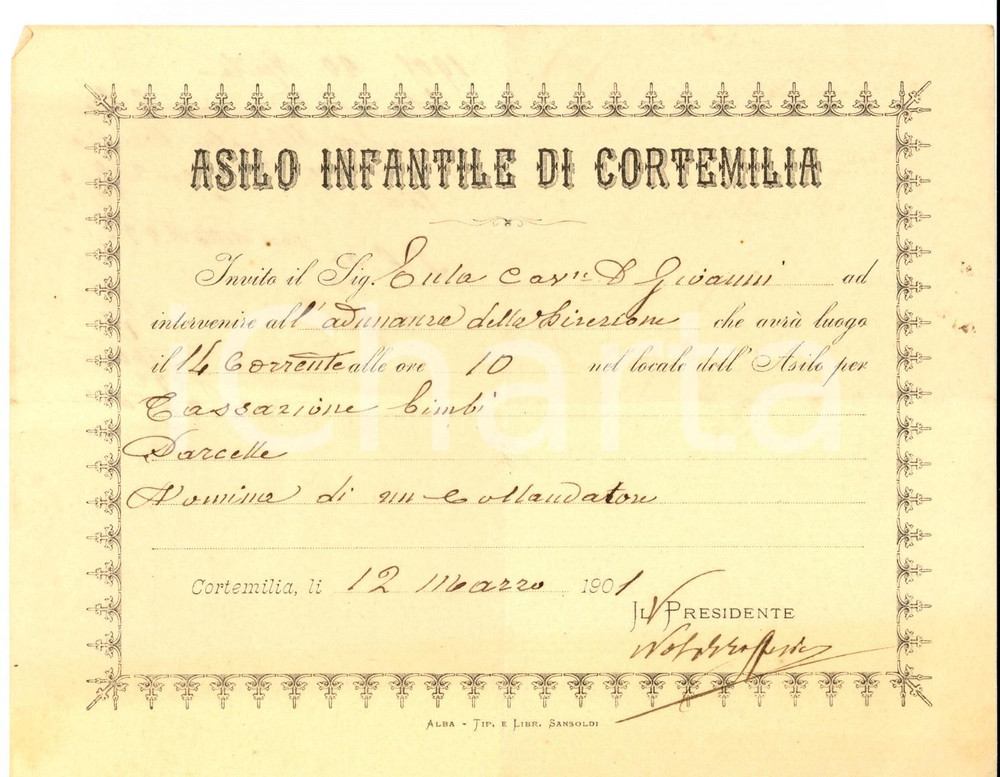 ASILO INFANTILE DI CORTEMILIA
Invito il Sig. Eula Cav.re D Giovanni ad
intervenire all'adunanza della Direzione che avrà luogo
il 14 Corrente alle ore 10 nel locale dell'Asilo per
Tassazione bimbi
Parcelle
Nomina di un Collaudatore
Cortemilia, li 12 Marzo 1901
IL V PRESIDENTE
ALBA - TIP. E LIBR. SANSOLDI
iCharta